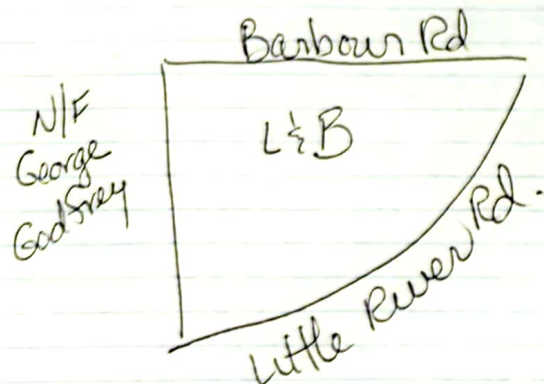 Barbour Rd
N/F
George
Godfrey
L & B
Little River Rd.